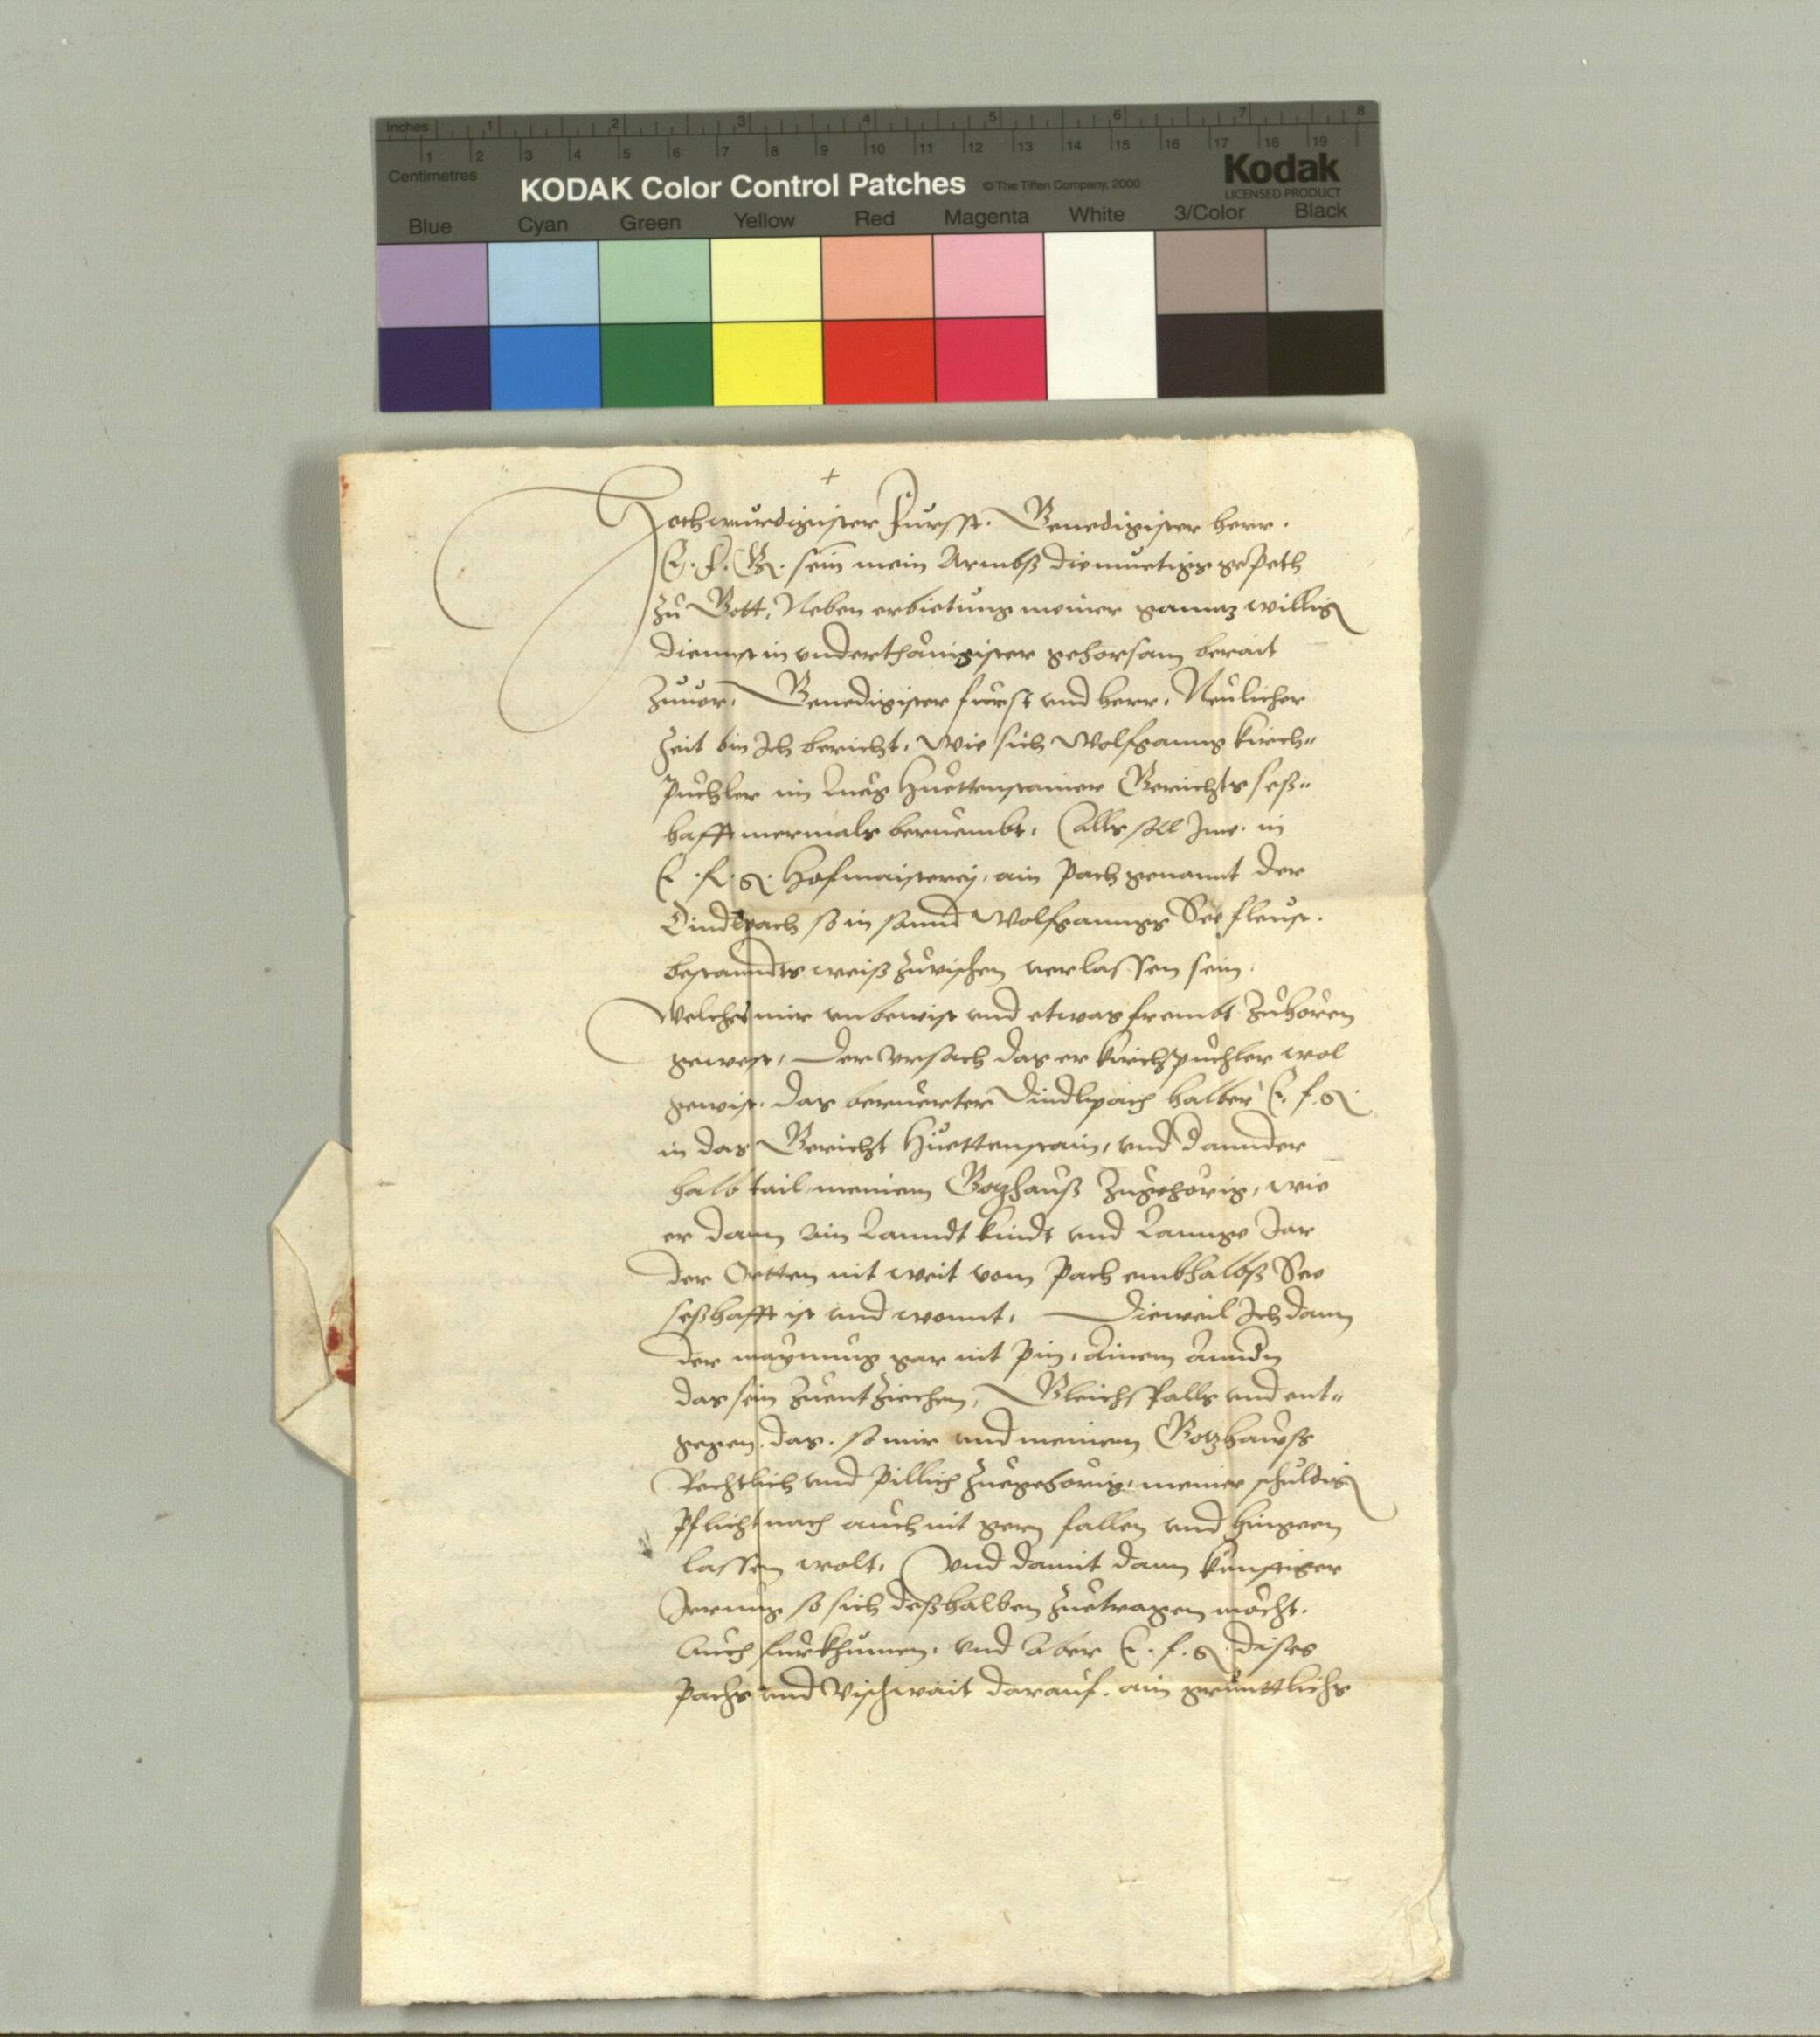 Inches 1 2 3 4 5 6 7 8
1 2 3 4 5 6 7 8 9 10 11 12 13 14 15 16 17 18 19
Centimetres
KODAK Color Control Patches © The Tiffen Company, 2000
Kodak
LICENSED PRODUCT
Blue Cyan Green Yellow Red Magenta White 3/Color Black
+
Hochwurdigister Fursst. Genedigister herr.
E. F. G. sein mein Armbß diemuetigs gepeth
zu Gott, Neben erbietung meiner gannz willig
diennst in underthänigister gehorsam berait
zuuor, Genedigister furst und herr, Neulicher
Zeit bin Ich bericht, wie sich Wolfganng Kirch"
puchler im Lueg Huettenstainer Gerichts seß"
hafft mermals beruembt, Alls soll Ime. in
E. F. G. Hofmaisterej, ain Pach genannt der
Dindlpach so in sannd Wolfganngs See fleust.
bestanndts weiß zuvischen verlassen sein.
Welches mir unbewist und etwas frembt zuhören
gewest, Der ursach das er Kirchpuchler wol
gewist. das beruerter Dindlpach halber E. f. G.
in das Gericht Huettenstain, und dann der
halb tail meinem Gozhauß zugehörig, wie
er dann ain Lanndtkindt und Lannge Jar
der Ortten nit weit vom Pach enhalbß See
seßhafft ist und wonnt, Dieweil Ich dann
der maynung gar nit pin, ainem anndn
das sein zuentziechen, Gleichsfalls und ent"
gegen. das. so mir und meinem Gozhawß
Rechtlich und pillich zuegehörig, meiner schuldig
Pflicht nach auch nit gern fallen und hingeen
lassen wolt, Und damit dann kunfftiger
Irrung so sich deßhalben zuetragen möcht.
Auch furkhumen, und Aber E. f. G. dises
Pachs und Vischwait darauf. ain grunttlichs